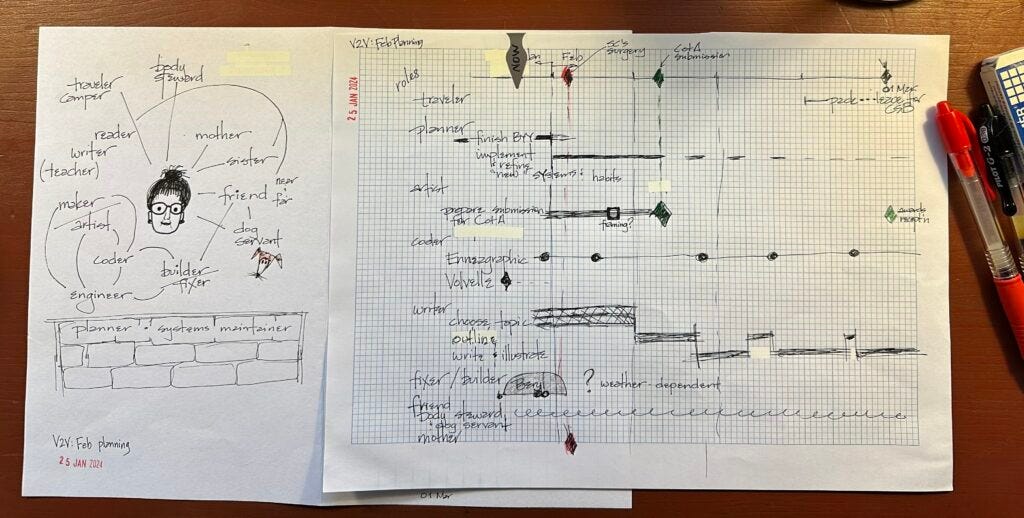 traveler
camper
body
steward
reader
writer
(teacher)
mother
sister
near
far
friend
dog
servant
maker
artist
coder
builder
fixer
engineer
planner • systems maintainer
V2V: Feb planning
25 JAN 2024
V2V: Feb Planning
25 JAN 2024
NOW
Jan
Feb
SC's
surgery
CotA
submission
01 Mar
roles
traveler
pack
leave for
planner
finish BYY
implement
refine
"new" systems: habits
artist
prepare submission
for CotA
framing?
awards
recept'n
coder
Enneagraphic
Volvelle
writer
choose topic
outline
write & illustrate
fixer/builder
Beryl
? weather-dependent
friend
body steward
dog servant
mother
01 Mar
PILOT G-2